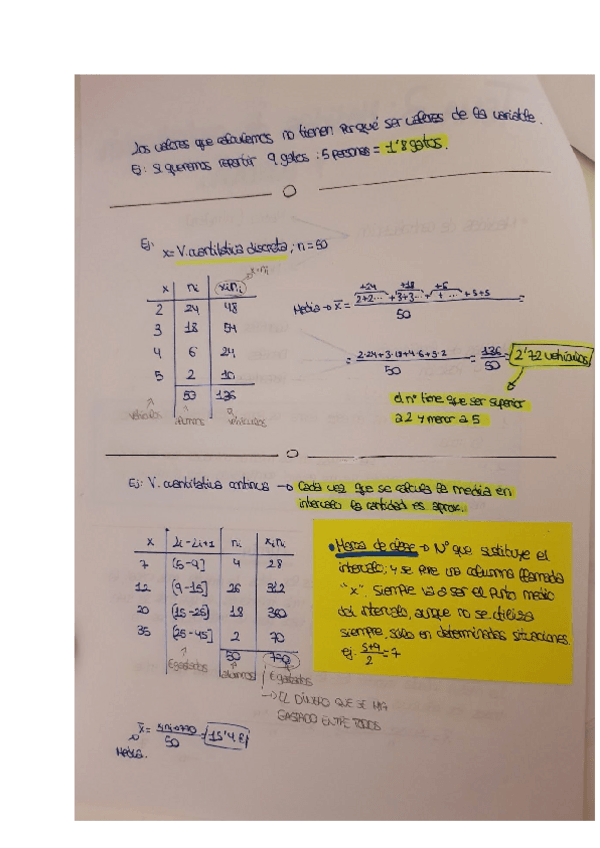 Los valores que calculemos no tienen porqué ser valores de la variable.
Ej: Si queremos repartir 9 gatos : 5 personas = 1'8 gatos.
Ej:
x = V. cuantitativa discreta, n = 50
x ni xini
2 24 48
3 18 54
4 6 24
5 2 10
50 136
vehículos alumnos vehículos
Media → x̄ = 2+2... + 3+3... + + ... + 5+5 =
+24 +18 +6
50
= 2·24+3·18+4·6+5·2 = 136 = 2'72 vehículos
50 50
el nº tiene que ser superior
a 2 y menor a 5
Ej: V. cuantitativa continua → Cada vez que se calcula la media en
intervalo la cantidad es aprox.
x Li - Li+1 ni xini
7 (5-9] 4 28
12 (9-15] 26 312
20 (15-25] 18 360
35 (25-45] 2 70
50 770
€ gastados alumnos € gastados
→ EL DINERO QUE SE HAN
GASTADO ENTRE TODOS
x̄ = 770 = 15'4 €
50
Media.
• Marca de clase → Nº que sustituye el
intervalo, y se pone una columna llamada
"x". Siempre va a ser el punto medio
del intervalo, aunque no se utiliza
siempre, solo en determinadas situaciones.
ej. 5+9 = 7
2